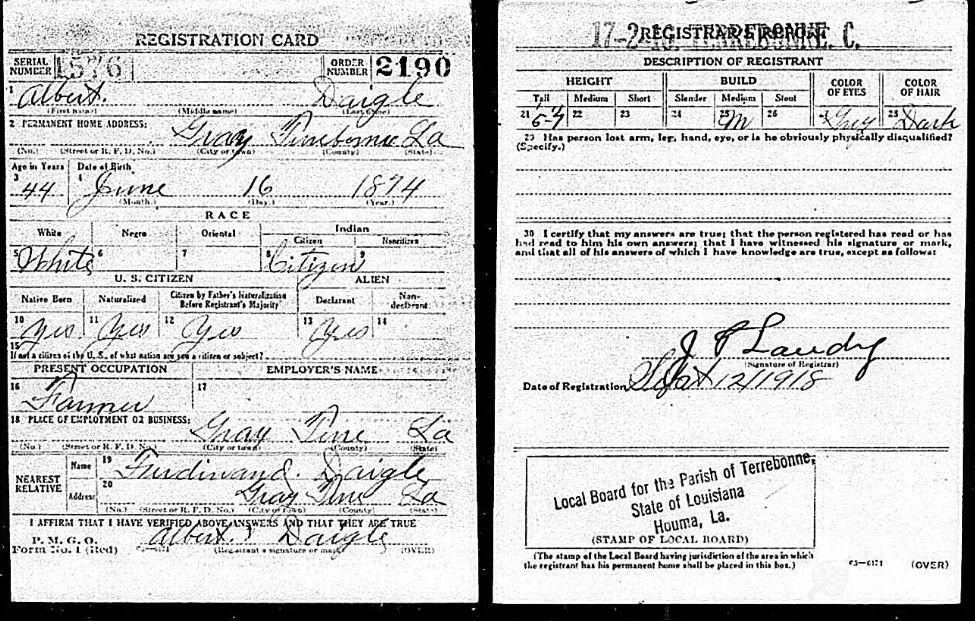 REGISTRATION CARD
SERIAL NUMBER 1576 ORDER NUMBER 2190
1 Albert. Daigle
(First name) (Middle name) (Last name)
2 PERMANENT HOME ADDRESS:
Gray Terrebonne La
(No.) (Street or R. F. D. No.) (City or town) (County) (State)
Age in Years Date of Birth
3 44 4 June 16 1874
(Month.) (Day.) (Year.)
RACE
White Negro Oriental Indian
Citizen Noncitizen
5 White 6 7 8 Citizen 9
U. S. CITIZEN ALIEN
Native Born Naturalized Citizen by Father's Naturalization Before Registrant's Majority Declarant Non-declarant
10 Yes 11 Yes 12 Yes 13 Yes 14
15 If not a citizen of the U. S., of what nation are you a citizen or subject?
PRESENT OCCUPATION EMPLOYER'S NAME
16 Farmer 17
18 PLACE OF EMPLOYMENT OR BUSINESS:
Gray Terre La
(No.) (Street or R. F. D. No.) (City or town) (County) (State)
NEAREST RELATIVE Name 19 Ferdinand. Daigle
Address 20 Gray Terre La
(No.) (Street or R. F. D. No.) (City or town) (County) (State)
I AFFIRM THAT I HAVE VERIFIED ABOVE ANSWERS AND THAT THEY ARE TRUE
P. M. G. O.
Form No. 1 (Red) Albert. Daigle
(Registrant's signature or mark) (OVER)
REGISTRAR'S REPORT
DESCRIPTION OF REGISTRANT
HEIGHT BUILD COLOR OF EYES COLOR OF HAIR
Tall Medium Short Slender Medium Stout
21 22 23 24 25 M 26 Grey 28 Dark
29 Has person lost arm, leg, hand, eye, or is he obviously physically disqualified?
(Specify.)
30 I certify that my answers are true; that the person registered has read or has
had read to him his own answers; that I have witnessed his signature or mark,
and that all of his answers of which I have knowledge are true, except as follows:
(Signature of Registrar)
Date of Registration Sept 12/1918
Local Board for the Parish of Terrebonne,
State of Louisiana
Houma, La.
(STAMP OF LOCAL BOARD)
(The stamp of the Local Board having jurisdiction of the area in which
the registrant has his permanent home shall be placed in this box.)
03—6171 (OVER)